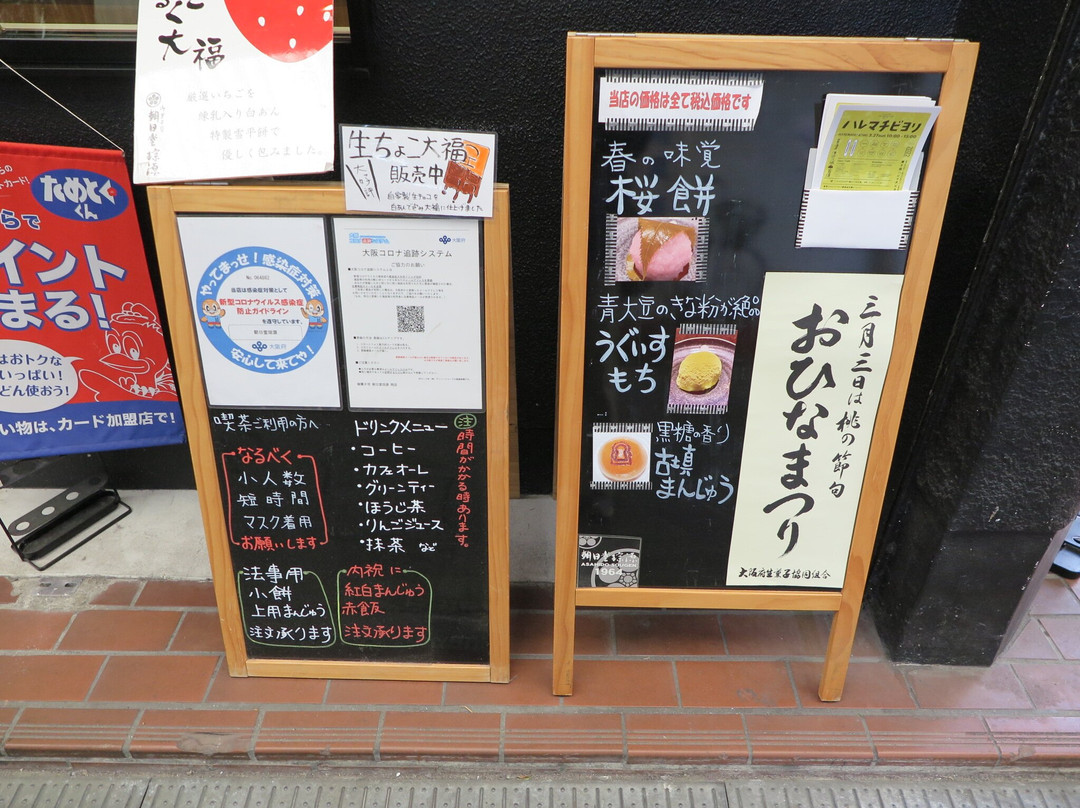 大福
厳選いちごを
練乳入り白あん
特製雪平餅で
優しく包みました。
ためとくくん
らで
イント
まる!
はおトクな
いっぱい!
どん使おう!
い物は、カード加盟店で!
生ちょこ大福
販売中
自家製生チョコを
白あんで包み大福に仕上げました
やってまっせ!感染症対策
当店は感染症対策として
新型コロナウイルス感染症
防止ガイドライン
を遵守しています。
朝日堂総源
大阪府
安心して来てや!
大阪府
大阪コロナ追跡システム
ご協力のお願い
喫茶ご利用の方へ
なるべく
小人数
短時間
マスク着用
お願いします
ドリンクメニュー
・コーヒー
・カフェオーレ
・グリーンティー
・ほうじ茶
・りんごジュース
・抹茶 など
注 時間がかかる時あります。
法事用
小餅
上用まんじゅう
注文承ります
内祝に
紅白まんじゅう
赤飯
注文承ります
当店の価格は全て税込価格です
ハレマチビヨリ
春の味覚
桜餅
青大豆のきな粉が絶品
うぐいす
もち
黒糖の香り
古墳
まんじゅう
ASAHIDO-SOUGEN
1964
三月三日は桃の節句
おひなまつり
大阪府生菓子協同組合